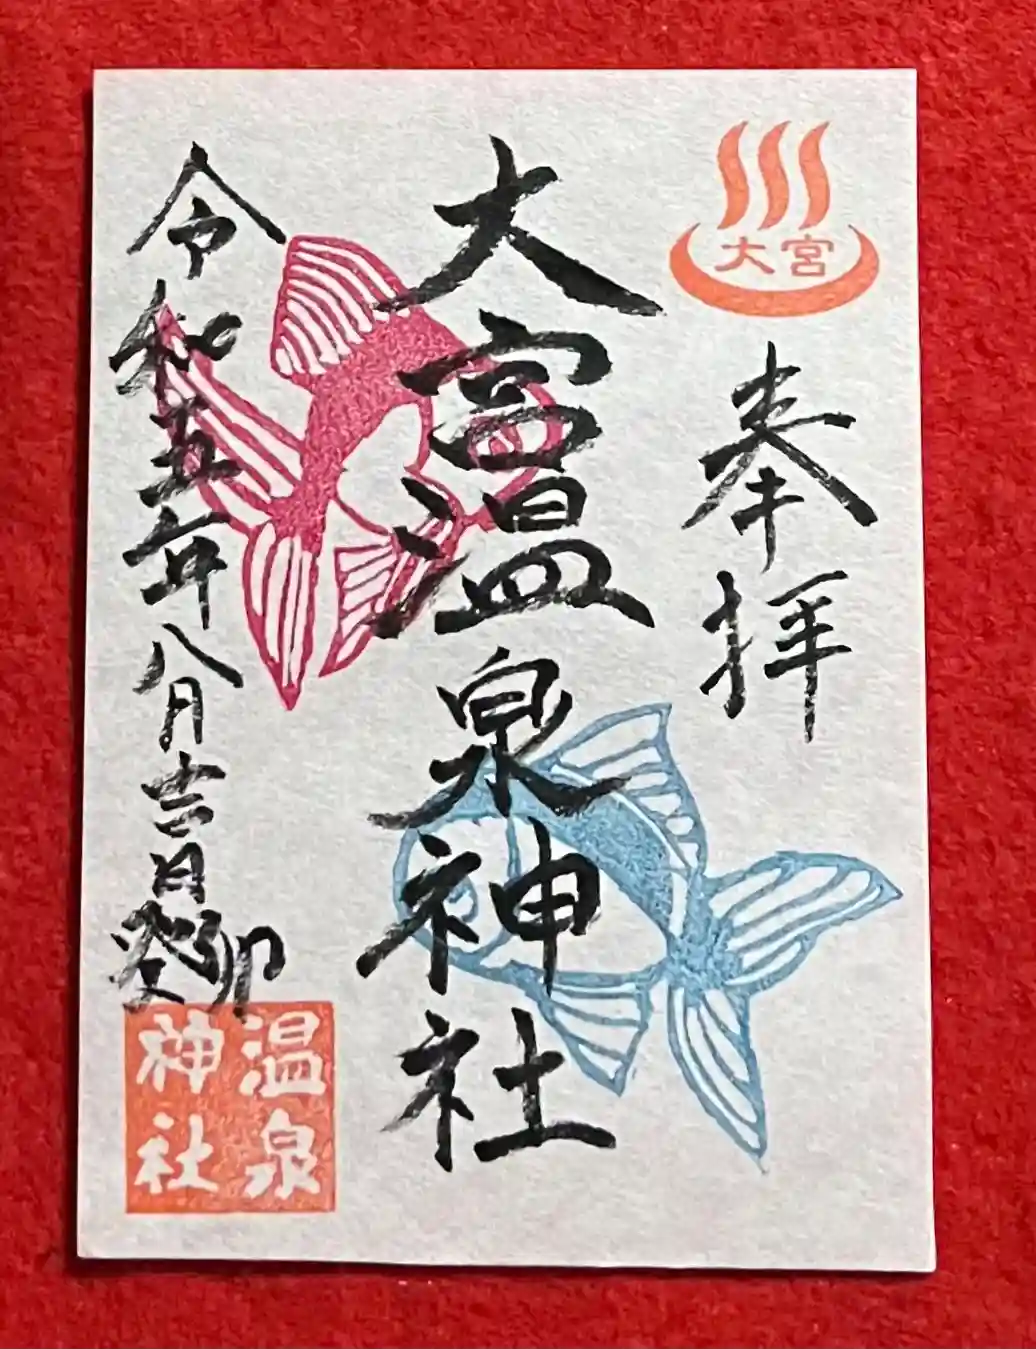 大宮
奉拝
大宮温泉神社
令和五年八月吉日
温泉
神社